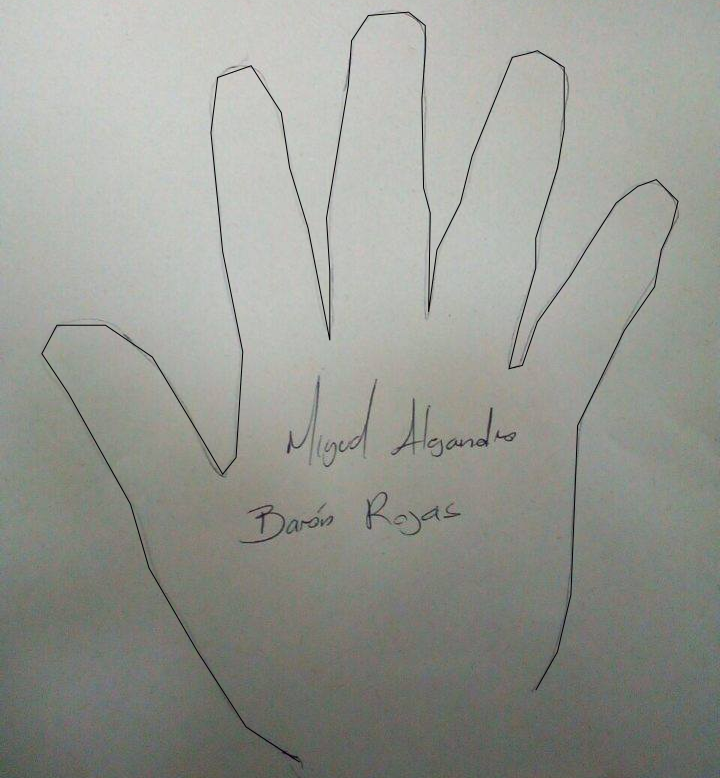 Miguel Alejandro
Barón Rojas